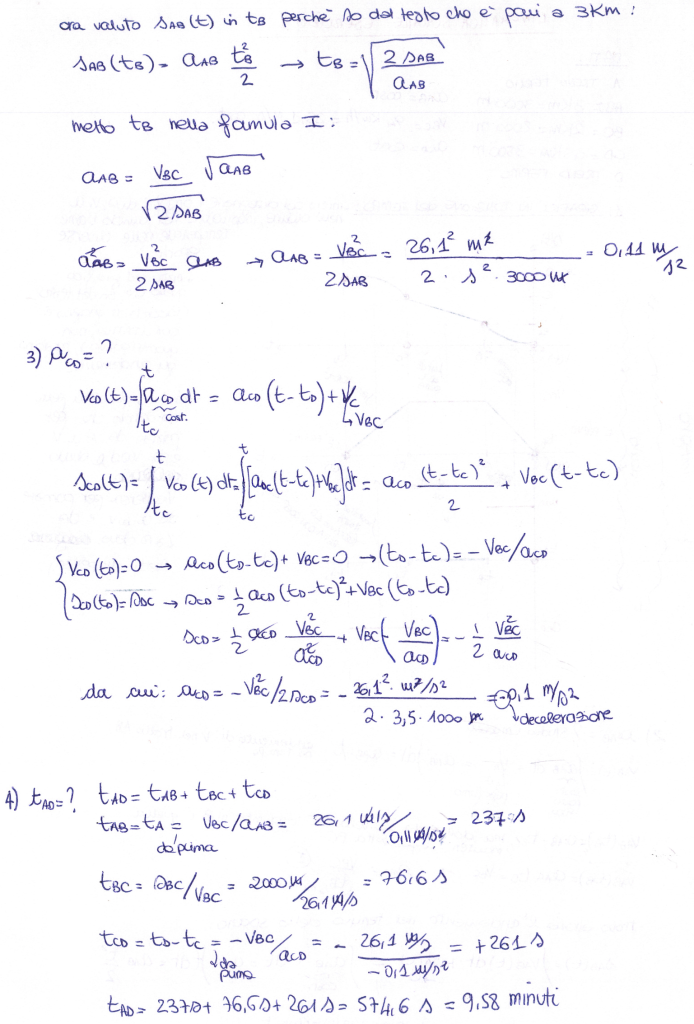 ora valuto s_AB(t) in t_B perchè so dal testo che è pari a 3Km :
s_AB(t_B) = a_AB t_B²/2 → t_B = √(2 s_AB / a_AB)
metto t_B nella formula I :
a_AB = V_BC √a_AB / √(2 s_AB)
a²_AB = V²_BC / 2 s_AB a_AB → a_AB = V²_BC / 2 s_AB = 26,1² m² / 2 · s² · 3000 m = 0,11 m/s²
3) a_CD = ?
V_CD(t) = ∫_{t_C}^{t} a_CD dt = a_CD (t - t_D) + V_C
cost.
↳ V_BC
s_CD(t) = ∫_{t_C}^{t} V_CD(t) dt = ∫_{t_C}^{t} [a_DC(t-t_C) + V_BC] dt = a_CD (t-t_C)²/2 + V_BC (t-t_C)
{ V_CD(t_D) = 0 → a_CD (t_D-t_C) + V_BC = 0 → (t_D-t_C) = - V_BC/a_CD
s_CD(t_D) = s_DC → s_CD = 1/2 a_CD (t_D-t_C)² + V_BC (t_D-t_C)
s_CD = 1/2 a_CD V²_BC / a²_CD + V_BC (- V_BC / a_CD) = - 1/2 V²_BC / a_CD
da cui : a_CD = - V²_BC / 2 s_CD = - 26,1² · m²/s² / 2 · 3,5 · 1000 m = -0,1 m/s²
↳ decelerazione
4) t_AD = ? t_AD = t_AB + t_BC + t_CD
t_AB = t_A = V_BC / a_AB = 26,1 m/s / 0,11 m/s² = 237 s
da prima
t_BC = s_BC / V_BC = 2000 m / 26,1 m/s = 76,6 s
t_CD = t_D - t_C = - V_BC / a_CD = - 26,1 m/s / -0,1 m/s² = +261 s
↳ da prima
t_AD = 237 s + 76,6 s + 261 s = 574,6 s = 9,58 minuti